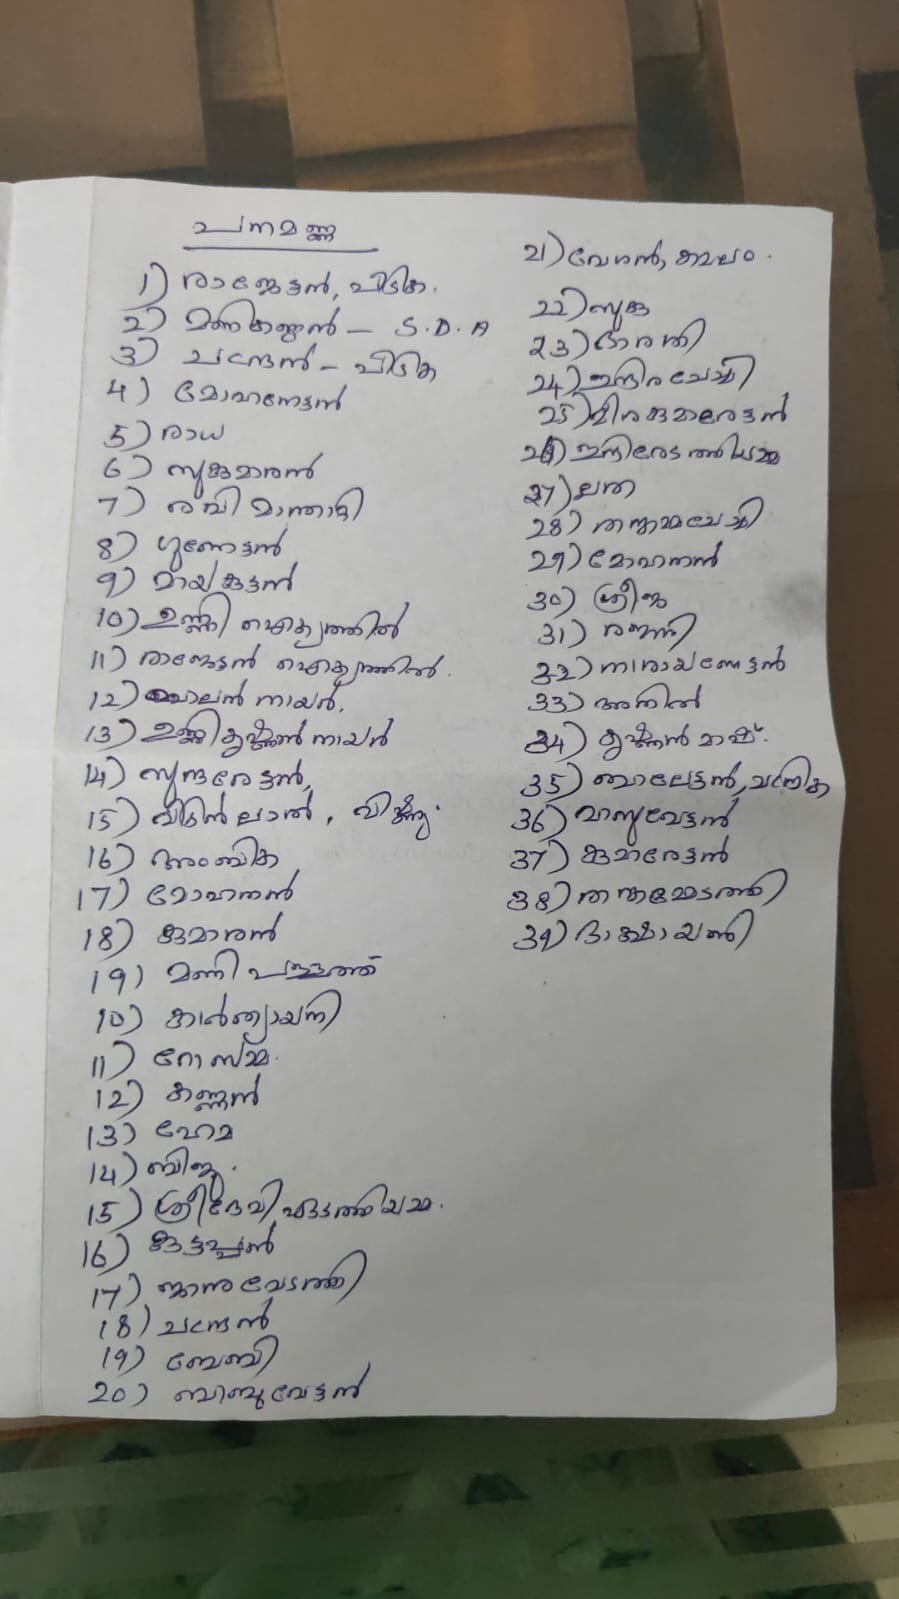 പനമണ്ണ
1) രാജേട്ടൻ, പീടിക.
2) മണികണ്ഠൻ - S.D.A
3) ചന്ദ്രേൻ - പീടിക
4) മോഹനേട്ടൻ
5) രാധ
6) സുകുമാരൻ
7) രവി മാന്താടി
8) ഗുണേട്ടൻ
9) മായകുട്ടൻ
10) ഉണ്ണി ഐക്യത്തിൽ
11) രാജേട്ടൻ ഐക്യത്തിൽ.
12) ബാലൻ നായർ.
13) ഉണ്ണികൃഷ്ണൻ നായർ
14) സുന്ദരേട്ടൻ,
15) വിപിൻ ലാൽ, വിഷ്ണു.
16) അംബിക
17) മോഹനൻ
18) കുമാരൻ
19) മണി
10) കാർത്യായനി
11) റോസമ്മ.
12) കണ്ണൻ
13) ഹേമ
14) ബിജു.
15) ശ്രീദേവി ഏടത്തിയമ്മ.
16) കുട്ടപ്പൻ
17) ജാനുവേടത്തി
18) ചന്ദ്രേൻ
19) ബേബി
20) ബാബുവേട്ടൻ
21) വേണു, കമലം.
22) സുമ
23) ഭാരതി
24) ഇന്ദിര ചേച്ചി
25) വിജയകുമാരേട്ടൻ
26) ഇന്ദിരേടത്തിയമ്മ
27) ലത
28) തങ്കമ്മചേച്ചി
29) മോഹനൻ
30) ശ്രീജ
31) രജനി
32) നാരായണേട്ടൻ
33) അനിൽ
34) കൃഷ്ണൻ മാഷ്.
35) ബാലേട്ടൻ, ചന്ദ്രിക
36) വാസുവേട്ടൻ
37) കുമാരേട്ടൻ
38) തങ്കമ്മേടത്തി
39) ദാക്ഷായണി